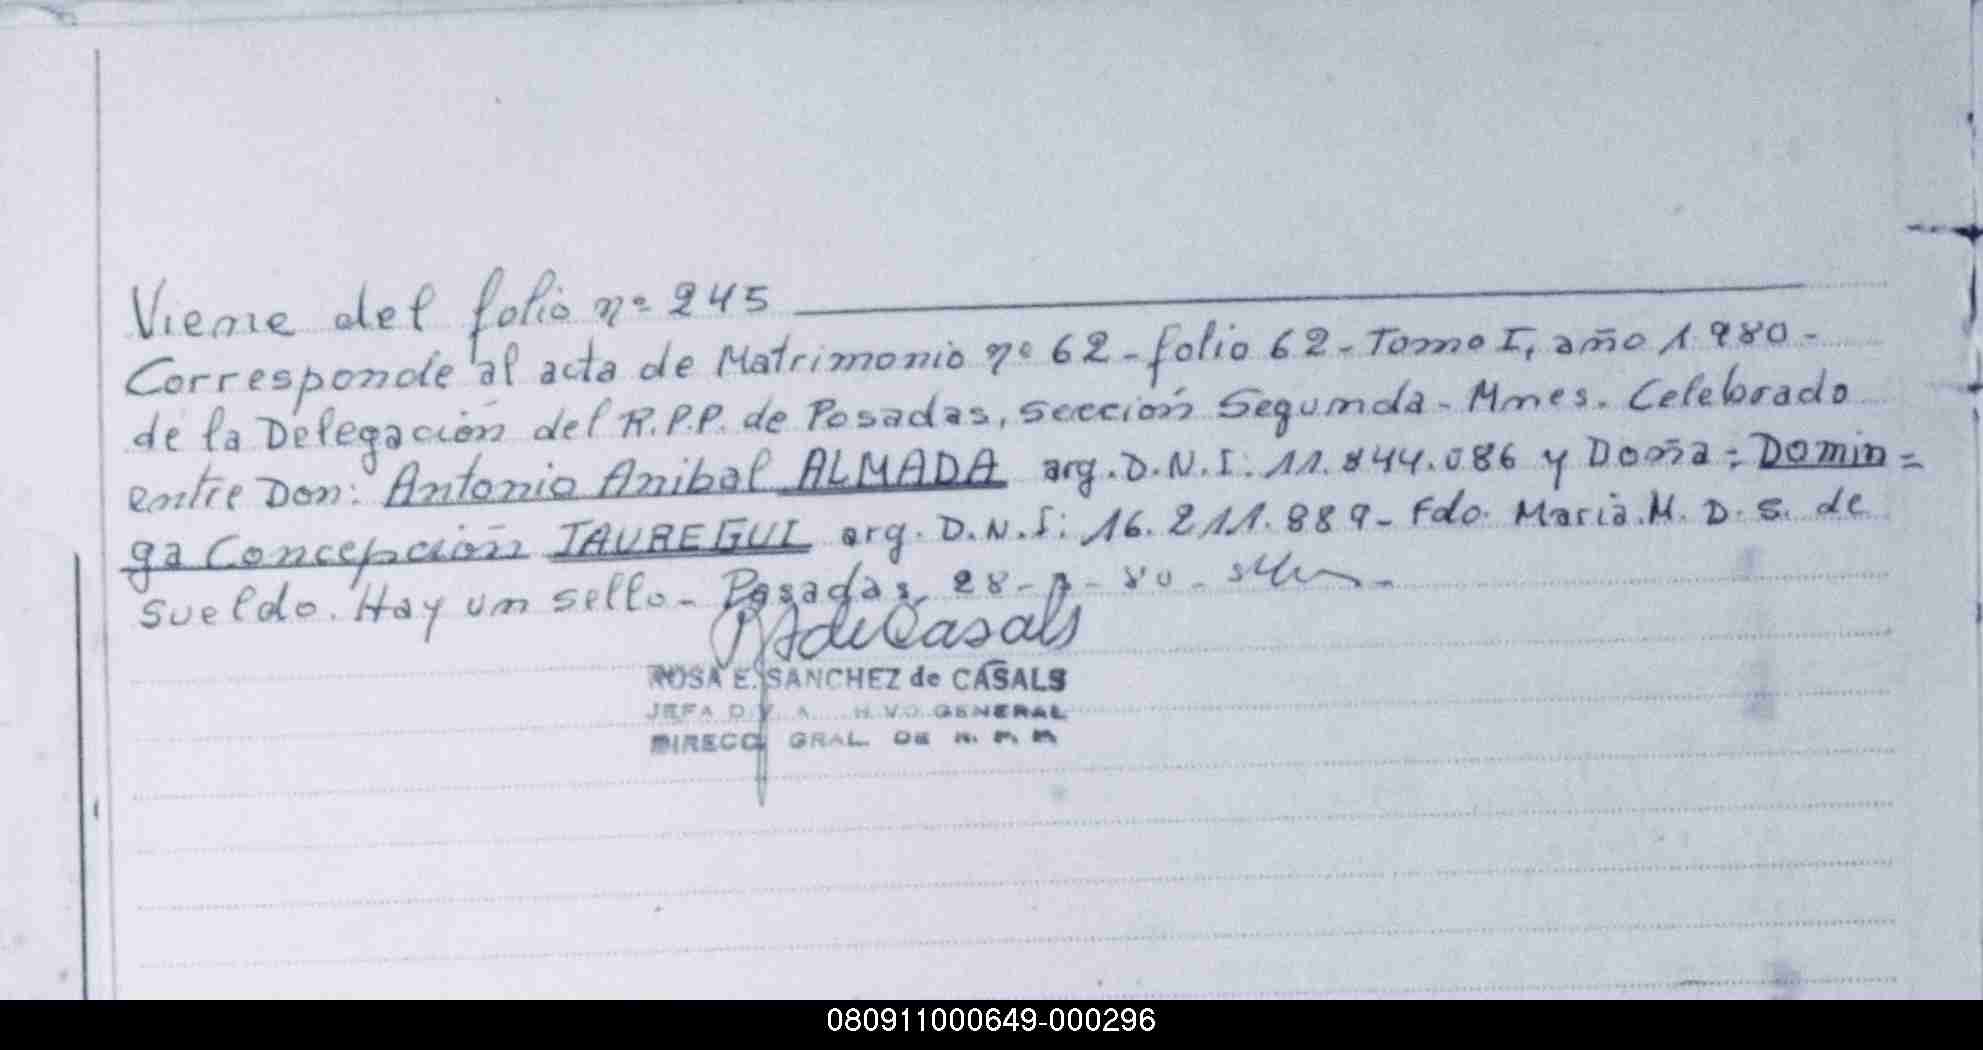 Viene del folio nº 245
Corresponde al acta de Matrimonio nº 62 - folio 62 - Tomo I, año 1.980 -
de la Delegación del R.P.P. de Posadas, sección Segunda - Mnes. Celebrado
entre Don: Antonio Anibal ALMADA arg. D.N.I: 11.844.086 y Doña = Domin =
ga Concepción JAUREGUI arg. D.N.I: 16.211.889 - Fdo. Maria. M. D. S. de
Sueldo. Hay un sello - Posadas, 28 - - 80 -
de Casals
ROSA E. SANCHEZ de CASALS
JEFA GENERAL
GRAL. DE
080911000649-000296